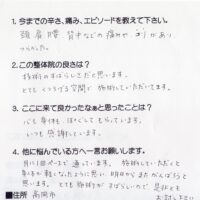 1. 今までの辛さ、痛み、エピソードを教えて下さい。
頭 肩 腰 背中などの痛みや こりがあり
つらかった。
2. この整体院の良さは?
施術のすばらしさだと思います。
とてもくつろげる空間で 施術していただいてます。
3. ここに来て良かったなぁと思ったことは?
心も 身体も ほぐしてもらっています。
いつも 感謝しています。
4. 他に悩んでいる方へ一言お願いします。
月に1回ペースで 通っています。施術していただくと
身体が軽くなったように思い 明日からまたがんばろうと
思います。とても 施術がすばらしいので 是非とも
■住所 高岡市